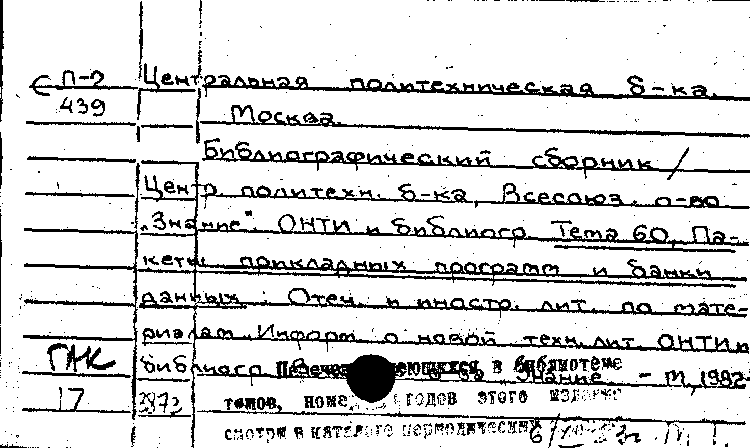 П-2 Центральная политехническая б-ка.
439 Москва.
Библиографический сборник /
Центр. политехн. б-ка, Всесоюз. о-во
„Знание". ОНТИ и библиогр. Тема 60, Па-
кеты прикладных программ и банки
данных : Отеч. и иностр. лит. по мате-
риалам „Информ. о новой техн. лит. ОНТИ и
ГАК библиогр. в библиотеке
„Знание". - М, 1982-
17 2873 томов, годов этого
смотри в каталоге периодических